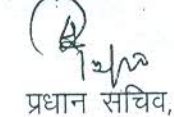 प्रधान सचिव,